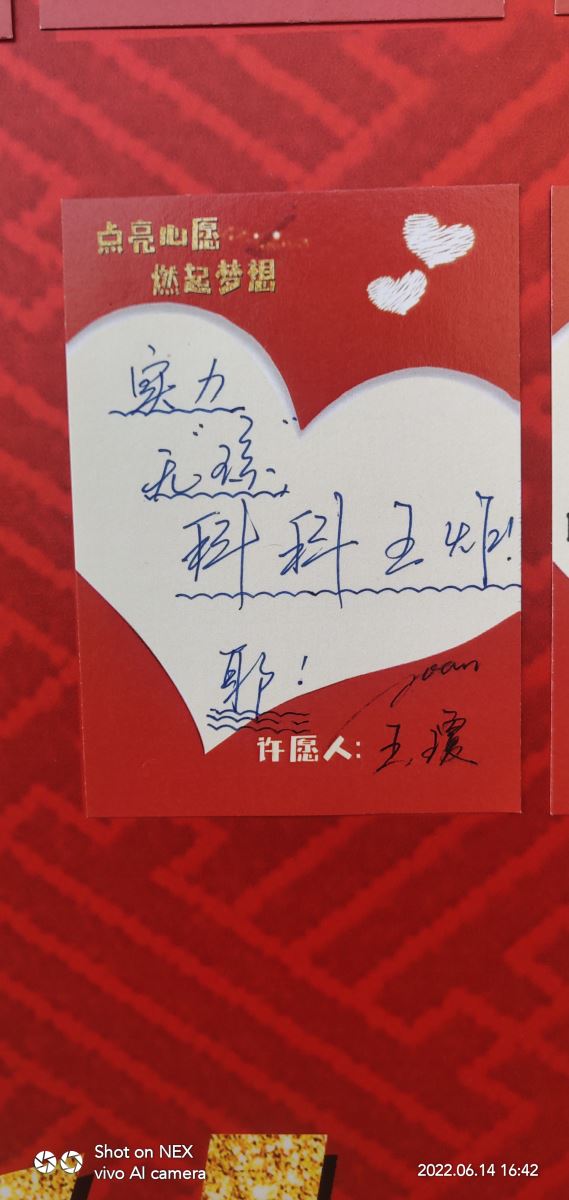 点亮心愿
燃起梦想
实力
无"琼"
科科王炸!
耶!
joan
许愿人: 王琼
Shot on NEX
vivo AI camera
2022.06.14 16:42